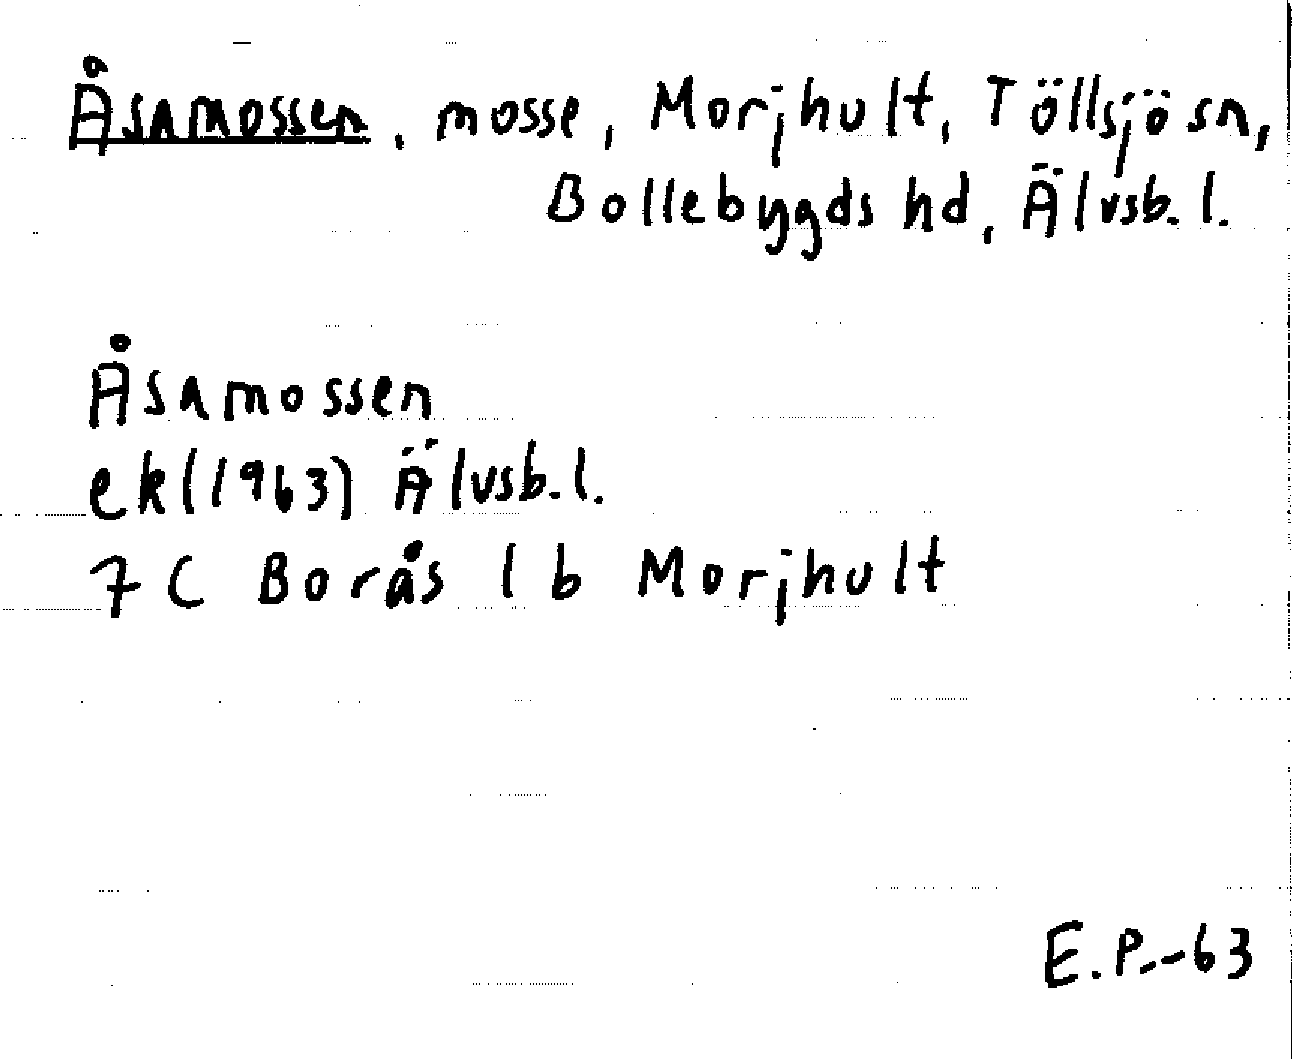 Åsamossen, mosse, Morjhult, Töllsjö sn,
Bollebygds hd, Älvsb. l.
Åsamossen
ek(1963) Älvsb. l.
7 C Borås l b Morjhult
E.P.-63